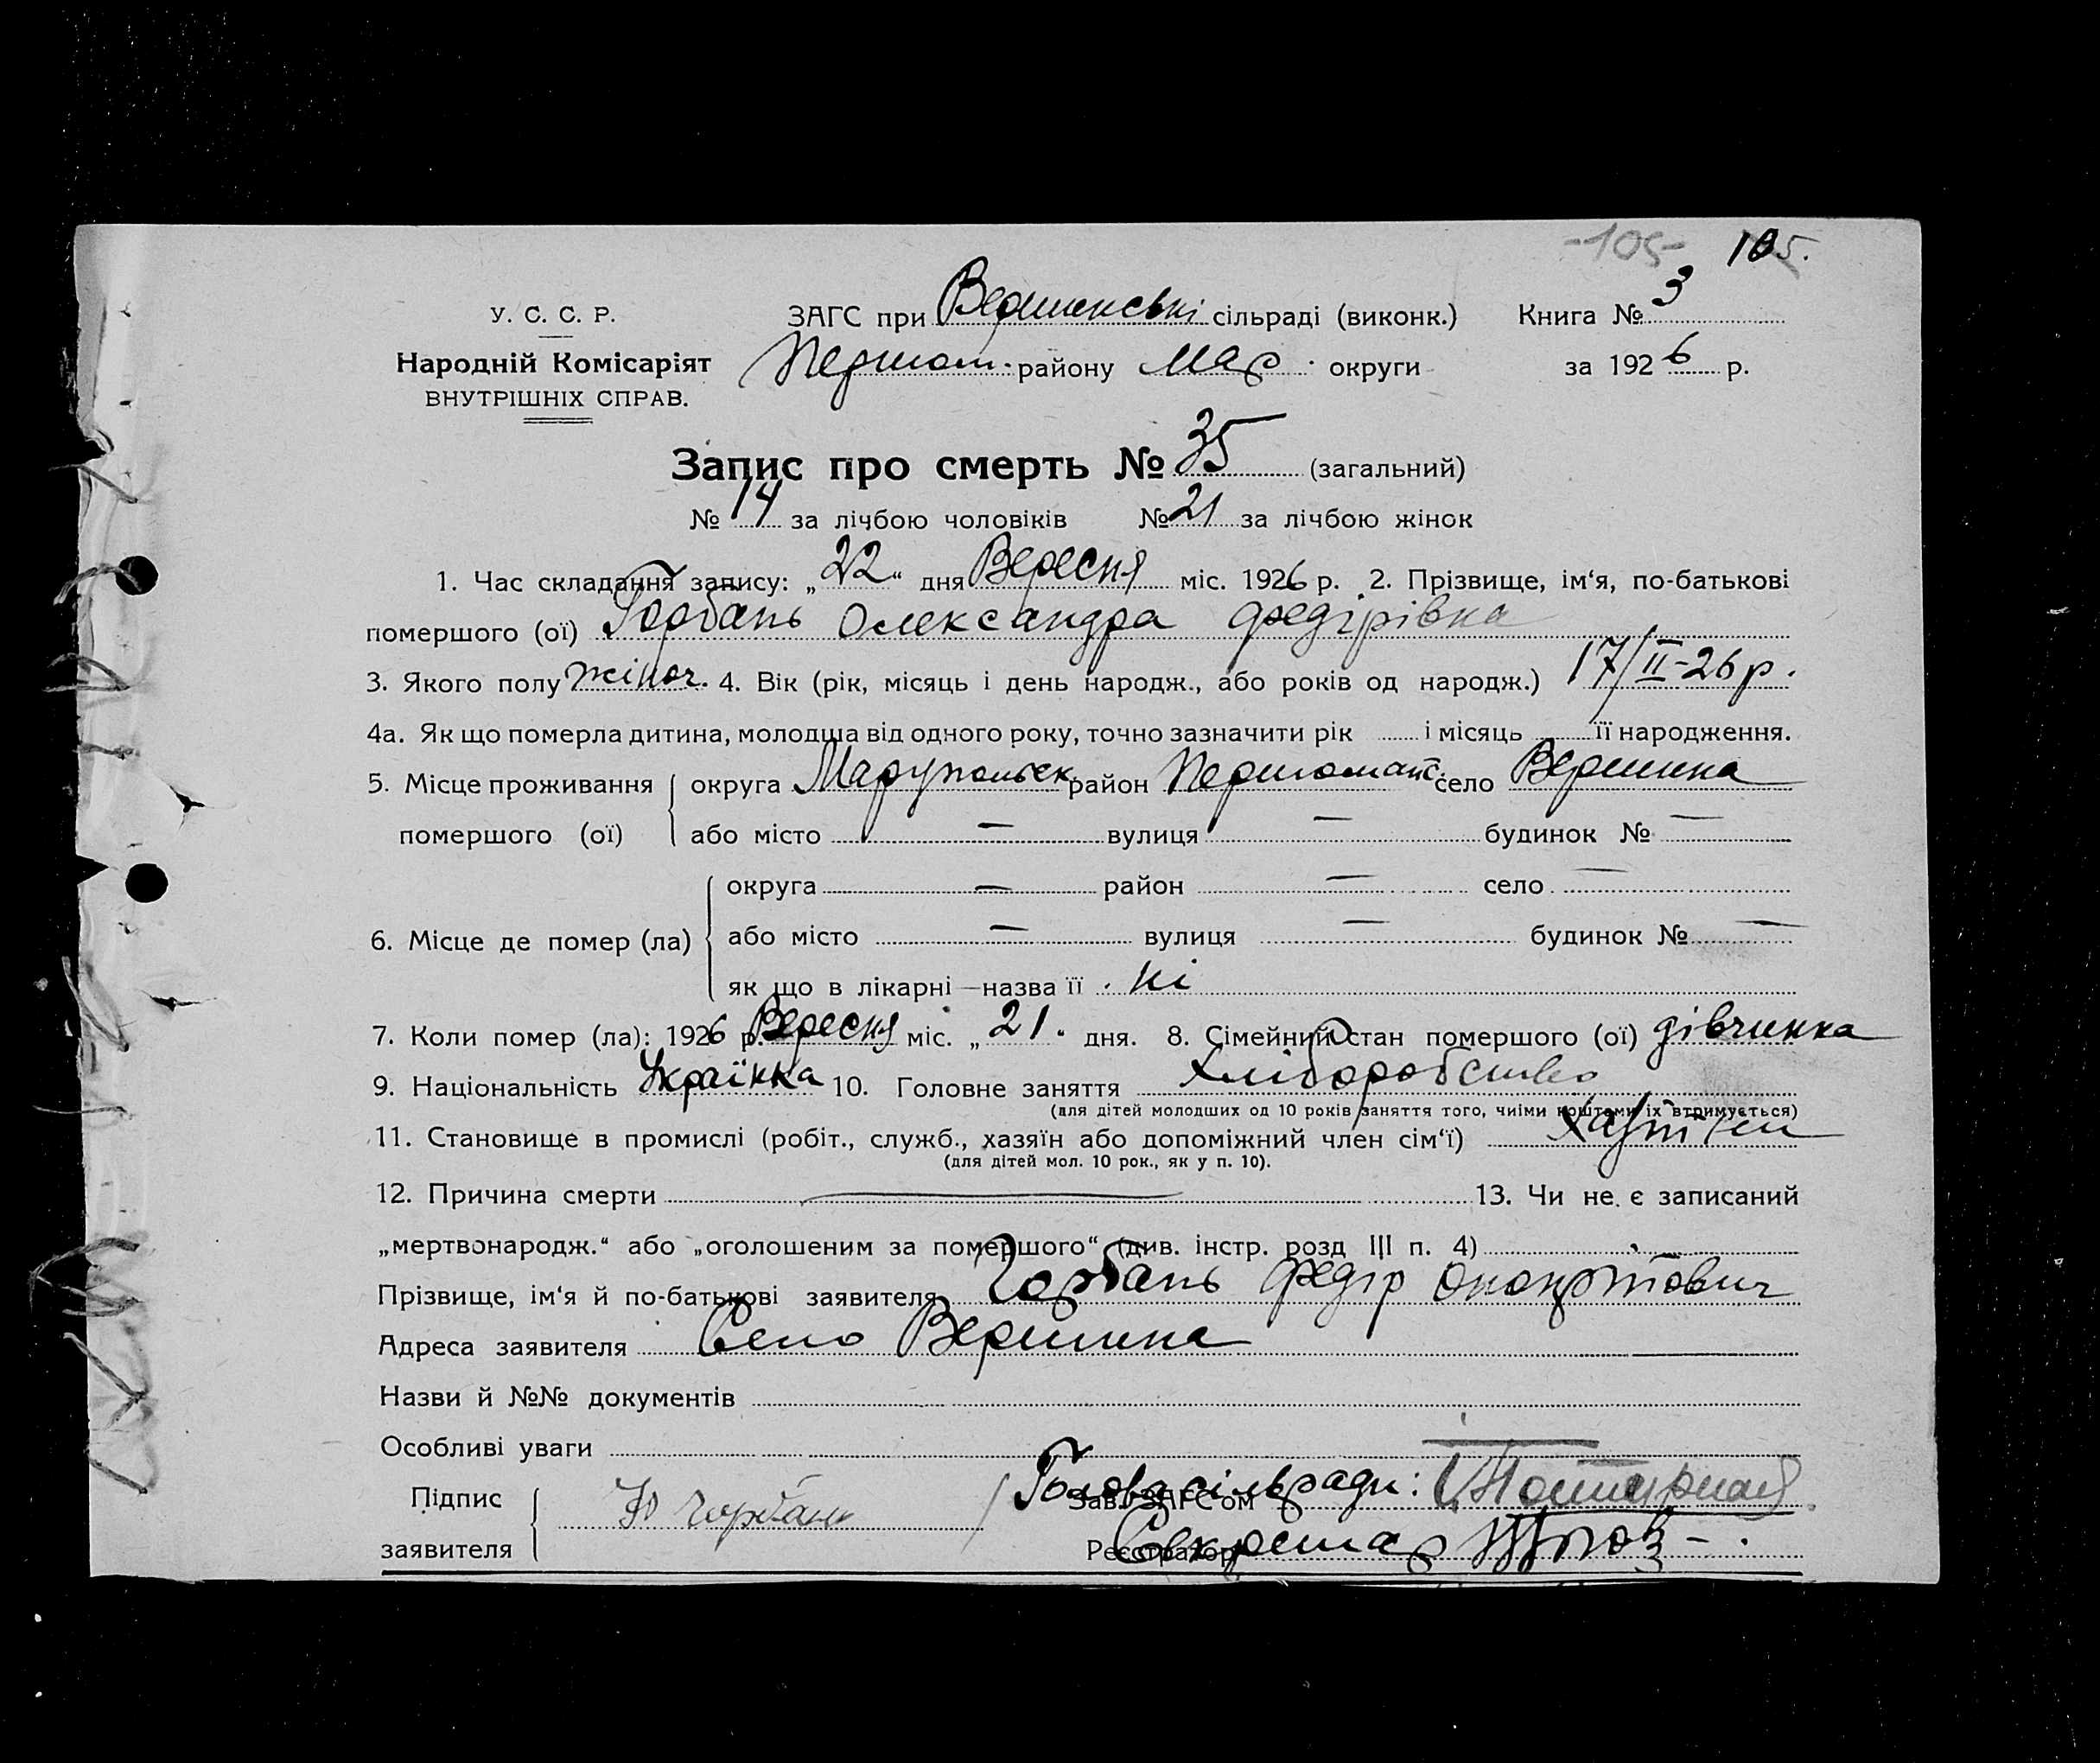 -105- 105.
У. С. С. Р. ЗАГС при Вершинські сільраді (виконк.) Книга № 3
Народній Комісаріят Першом. району Мар. округи за 1926 р.
ВНУТРІШНІХ СПРАВ.
Запис про смерть № 35 (загальний)
№ 14 за лічбою чоловіків № 21 за лічбою жінок
1. Час складання запису: „22“ дня Вересня міс. 1926 р. 2. Прізвище, ім‘я, по-батькові
помершого (ої) Горбань Олександра Федірівна
3. Якого полу жіноч. 4. Вік (рік, місяць і день народж., або років од народж.) 17/II-26 р.
4а. Як що померла дитина, молодша від одного року, точно зазначити рік і місяць її народження.
5. Місце проживання округа Марупольськ район Першомайс. село Вершина
помершого (ої) або місто — вулиця — будинок № —
округа — район — село —
6. Місце де помер (ла) або місто — вулиця — будинок № —
як що в лікарні—назва її Ні
7. Коли помер (ла): 1926 р. Вересня міс. „21“ дня. 8. Сімейний стан помершого (ої) дівчинка
9. Національність Українка 10. Головне заняття Хліборобство
(для дітей молодших од 10 років заняття того, чиїми коштами їх втримується)
11. Становище в промислі (робіт., служб., хазяїн або допоміжний член сім‘ї)
(для дітей мол. 10 рок., як у п. 10).
12. Причина смерти — 13. Чи не є записаний
„мертвонародж.“ або „оголошеним за помершого“ (див. інстр. розд III п. 4)
Прізвище, ім‘я й по-батькові заявителя Горбань Федір
Адреса заявителя Село Вершина
Назви й №№ документів
Особливі уваги
Підпис Горбань Голова сільради: Зав. ЗАГС‘ом
заявителя Реєстратор Секретар